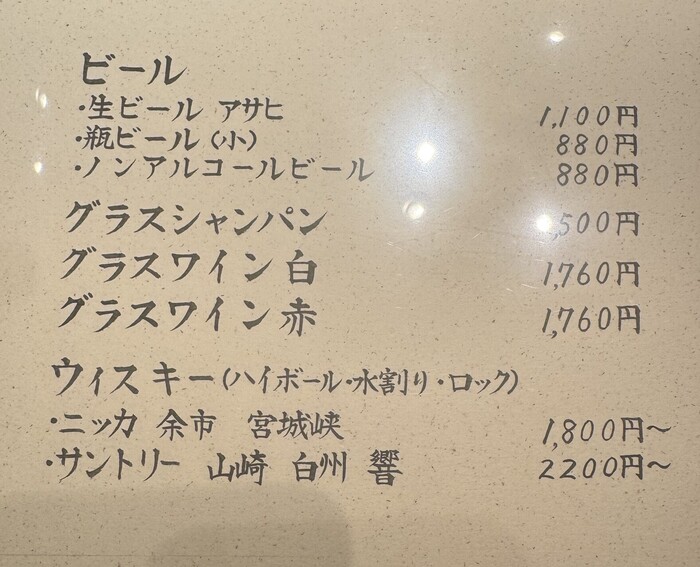 ビール
・生ビール アサヒ 1,100円
・瓶ビール(小) 880円
・ノンアルコールビール 880円
グラスシャンパン ,500円
グラスワイン 白 1,760円
グラスワイン 赤 1,760円
ウィスキー(ハイボール・水割り・ロック)
・ニッカ 余市 宮城峡 1,800円〜
・サントリー 山崎 白州 響 2200円〜